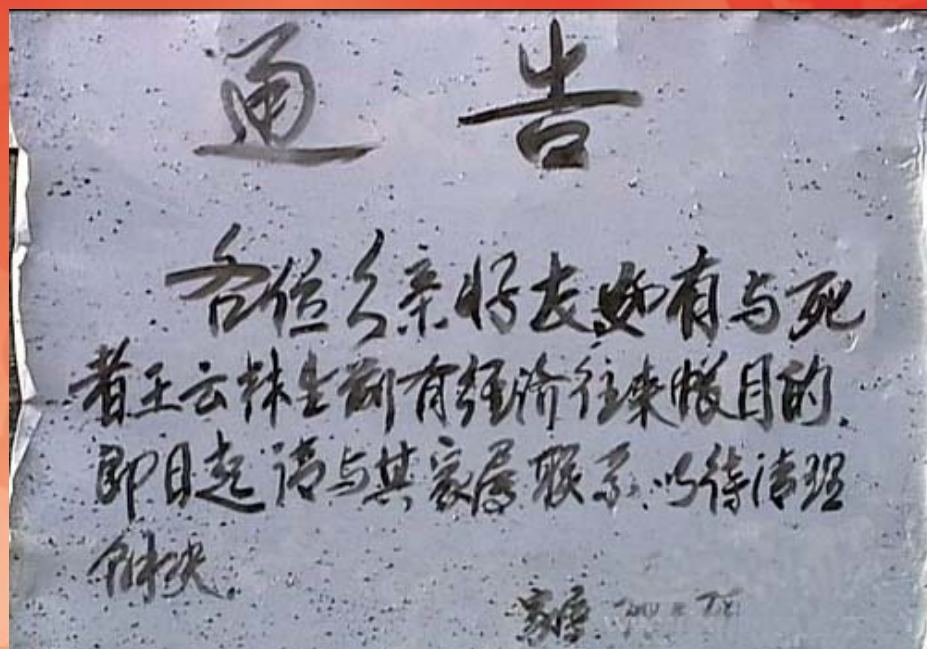 通告
各位乡亲好友如有与死
者王云林生前有经济往来帐目的.
即日起请与其家属联系.以待清理
解决.
家属